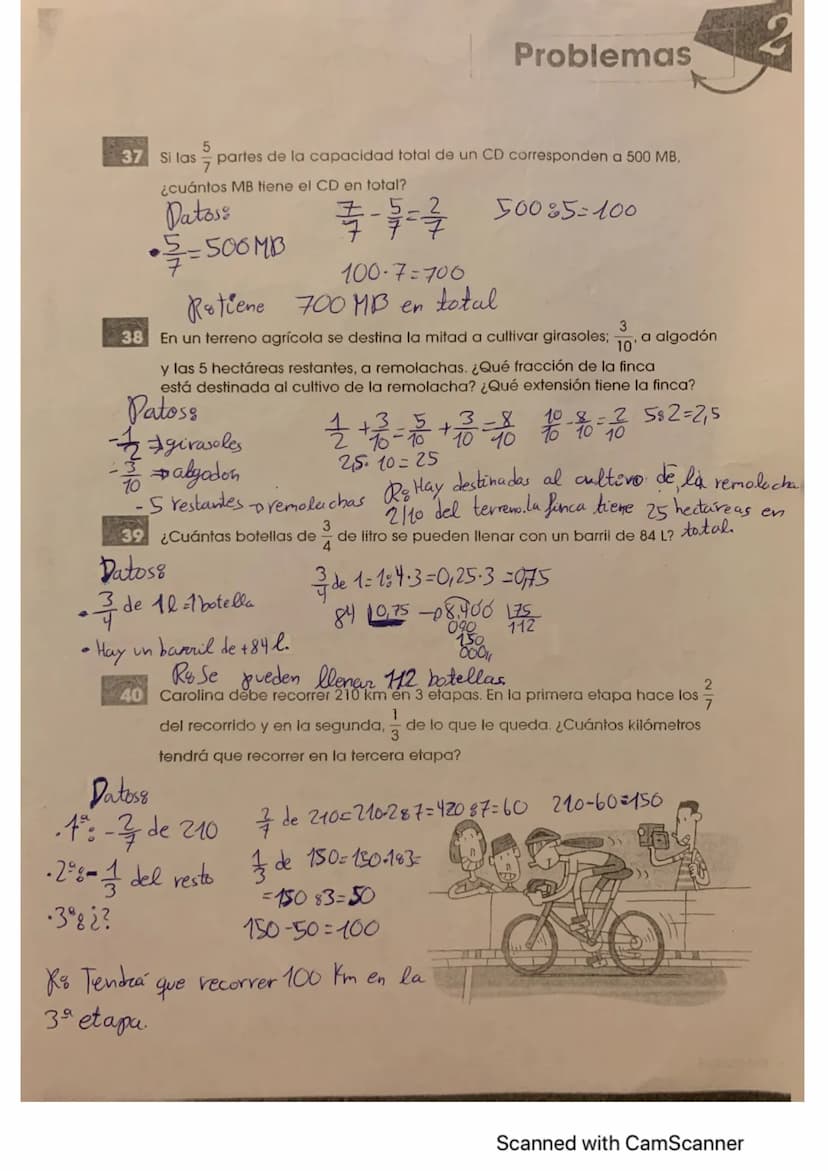 Problemas 2
37 Si las 5/7 partes de la capacidad total de un CD corresponden a 500 MB,
¿cuántos MB tiene el CD en total?
Datos:
7/7 - 5/7 = 2/7
500:5=100
• 5/7 = 500 MB
100·7=700
R: tiene 700 MB en total
38 En un terreno agrícola se destina la mitad a cultivar girasoles; 3/10, a algodón
y las 5 hectáreas restantes, a remolachas. ¿Qué fracción de la finca
está destinada al cultivo de la remolacha? ¿Qué extensión tiene la finca?
Datos:
1/2 + 3/10 = 5/10 + 3/10 = 8/10
10/10 - 8/10 = 2/10
5:2=2,5
- 1/2 → girasoles
2,5·10=25
- 3/10 → algodon
- 5 restantes → remolachas
R: Hay destinadas al cultivo de la remolacha
2/10 del terreno. la finca tiene 25 hectáreas en
total.
39 ¿Cuántas botellas de 3/4 de litro se pueden llenar con un barril de 84 L?
Datos:
3/4 de 1=1:4·3=0,25·3=0,75
• 3/4 de 1l=1 botella
84 |0,75 → 8.400 |75
090 112
150
000,,
• Hay un barril de +84 l.
R: Se pueden llenar 112 botellas
40 Carolina debe recorrer 210 km en 3 etapas. En la primera etapa hace los 2/7
del recorrido y en la segunda, 1/3 de lo que le queda. ¿Cuántos kilómetros
tendrá que recorrer en la tercera etapa?
Datos:
2/7 de 210=210·2:7=420:7=60
210-60=150
·1ª: - 2/7 de 210
1/3 de 150=150·1:3=
·2ª:- 1/3 del resto
=150:3=50
·3ª: ¿?
150-50=100
R: Tendrá que recorrer 100 Km en la
3ª etapa.
Scanned with CamScanner